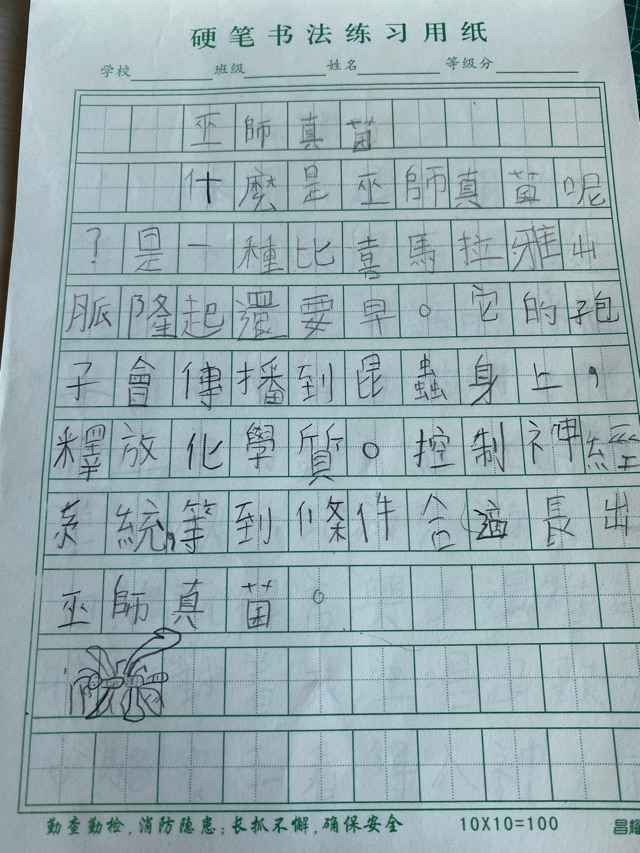 硬笔书法练习用纸
学校 班级 姓名 等级分
巫師真菌
什麼是巫師真菌呢
?是一種比喜馬拉雅山
脈隆起還要早。它的孢
子會傳播到昆蟲身上,
釋放化學質。控制神經
系統,等到條件合適長出
巫師真菌。
勤查勤检,消防隐患;长抓不懈,确保安全 10X10=100 昌耀